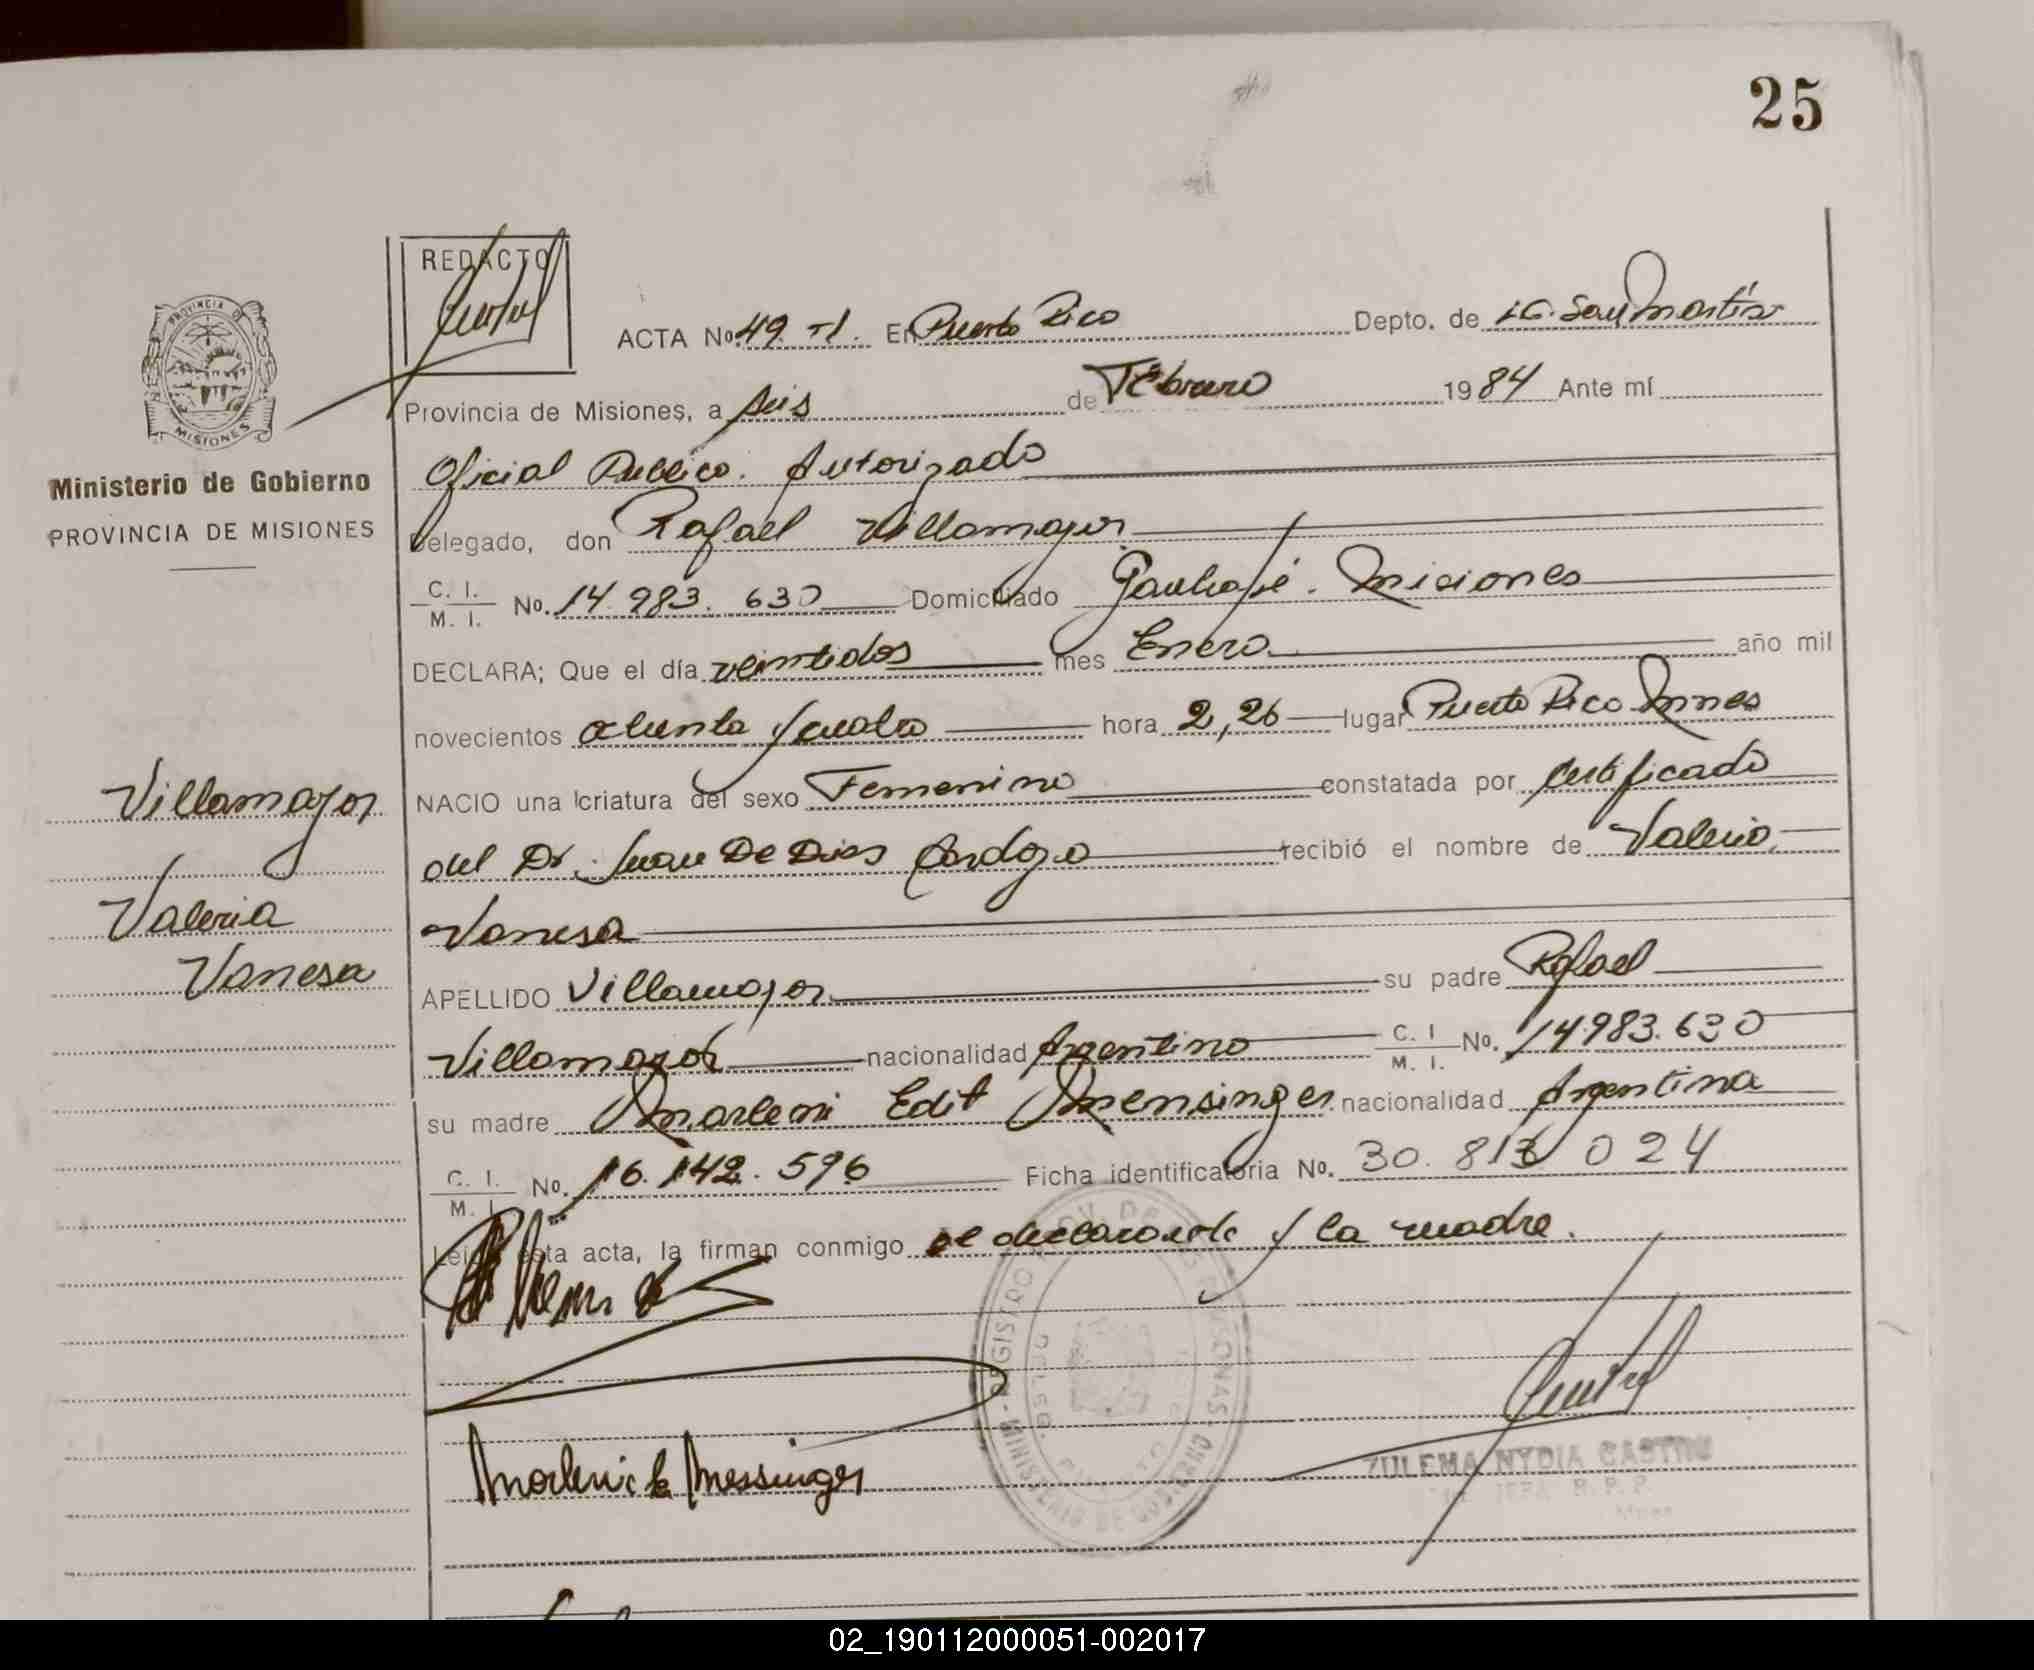 25
REDACTO
ACTA No. 49 T1. En Puerto Rico Depto. de L.G. San Martín
Provincia de Misiones, a seis de Febrero 1984 Ante mí
Oficial Publico. Autorizado
Delegado, don Rafael Villamayor
C. I. M. I. No. 14.983.630 Domiciliado Garuhapé. Misiones
DECLARA; Que el día veintidos mes Enero año mil
novecientos ochenta y cuatro hora 2,26 lugar Puerto Rico Mnes
NACIO una criatura del sexo Femenino constatada por certificado
del Dr. Juan De Dios Cardozo recibió el nombre de Valeria
Vanesa
APELLIDO Villamayor su padre Rafael
Villamayor nacionalidad Argentino C. I M. I. No. 14.983.630
su madre Marleni Edit Mensinger nacionalidad Argentina
C. I. M. I. No. 16.142.596 Ficha identificatoria No. 30.813 024
Leída esta acta, la firman conmigo el declarante y la madre.
MISIONES
Ministerio de Gobierno
PROVINCIA DE MISIONES
Villamayor
Valeria
Vanesa
ZULEMA NYDIA CASTRO
02_190112000051-002017